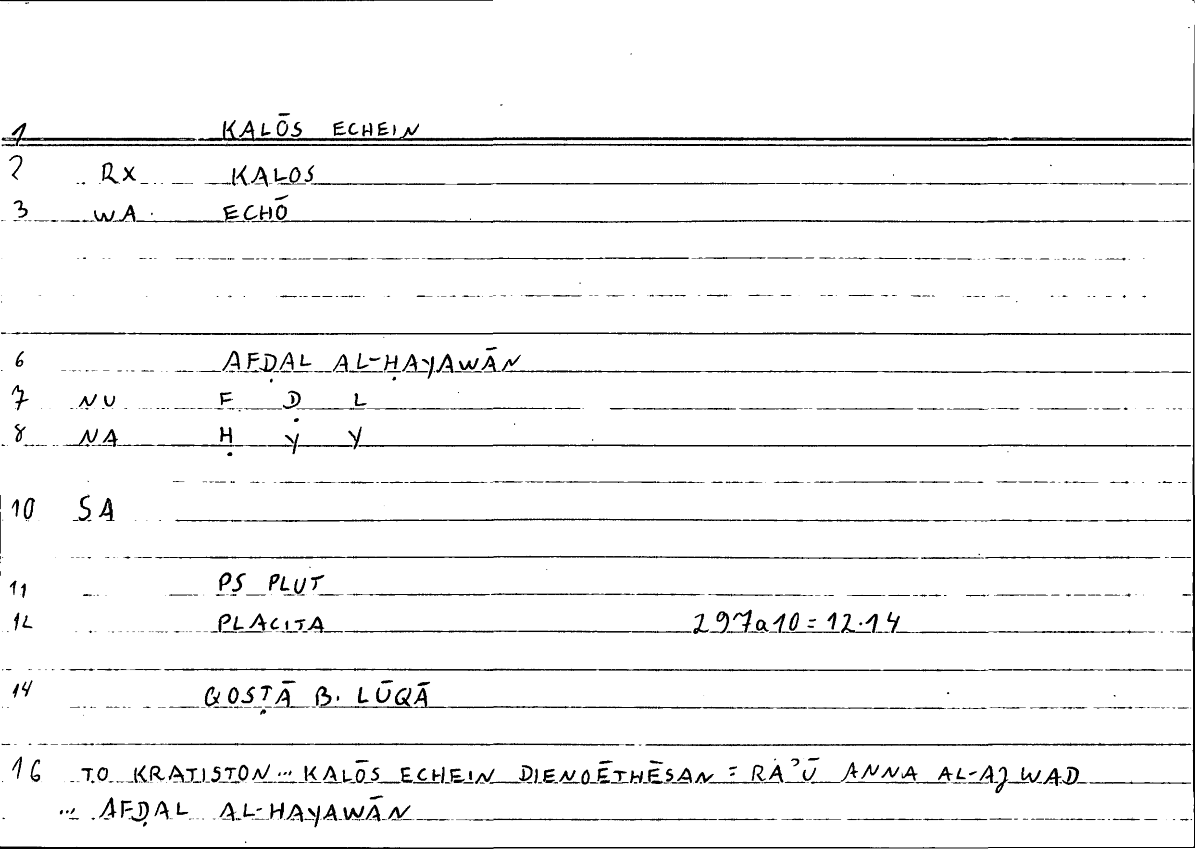 1 KALŌS ECHEIN
2 RX KALOS
3 WA ECHŌ
6 AFḌAL AL-ḤAYAWĀN
7 NU F Ḍ L
8 NA Ḥ Y Y
10 SA
11 PS PLUT
12 PLACITA 297a10=12.14
14 QOSṬĀ B. LŪQĀ
16 TO KRATISTON... KALŌS ECHEIN DIENOĒTHĒSAN = RAʾŪ ANNA AL-AJWAD
... AFḌAL AL-HAYAWĀN